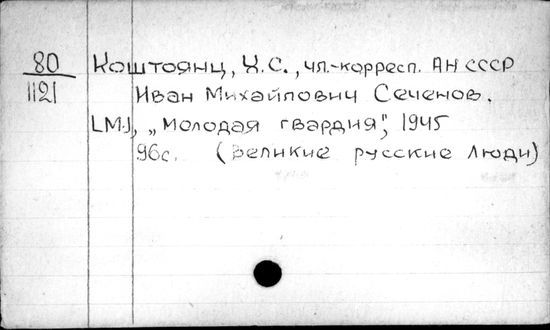 80
1121
Коштоянц, Х.С., чл.-корресп. АН СССР
Иван Михайлович Сеченов.
[М.], „Молодая гвардия", 1945
96с. (Великие русские люди)